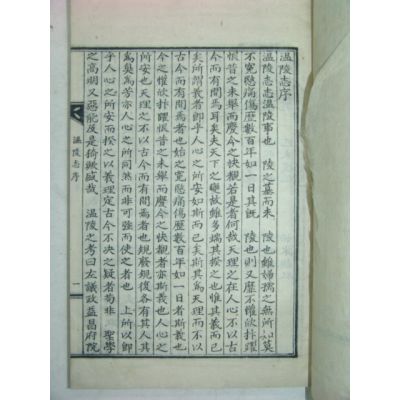 溫陵志序
溫陵志志溫陵事也 陵之墓而未 陵也雖婦孺之無所知莫
不寃慜痛傷歷數百年如一日其旣 陵也則又靡不懽欣抃躍
恨昔之未舉而慶今之快覩若是者何哉天理之在人心不以古
今而有間焉耳矣夫天下之變故雖多端其揆之也惟其義而已
矣所謂義者卽乎人心之所安如斯而已矣斯其爲天理而不以
古今而有間焉者也始之寃慜痛傷歷數百年如一日者斯義也
今之懽欣抃躍恨昔之未舉而慶今之快覩者亦斯義也人心之
所安也天理之不以古今而有間焉者也規廢規復各有其人其
爲亦人心之所同然而非可强而使之者也 上所以卽
乎人心之所安而揆之以義理定古今不決之疑者苟非 聖學
之高明又惡能及是猗歟盛哉 溫陵之考曰左議政益昌府院
溫陵志序 一